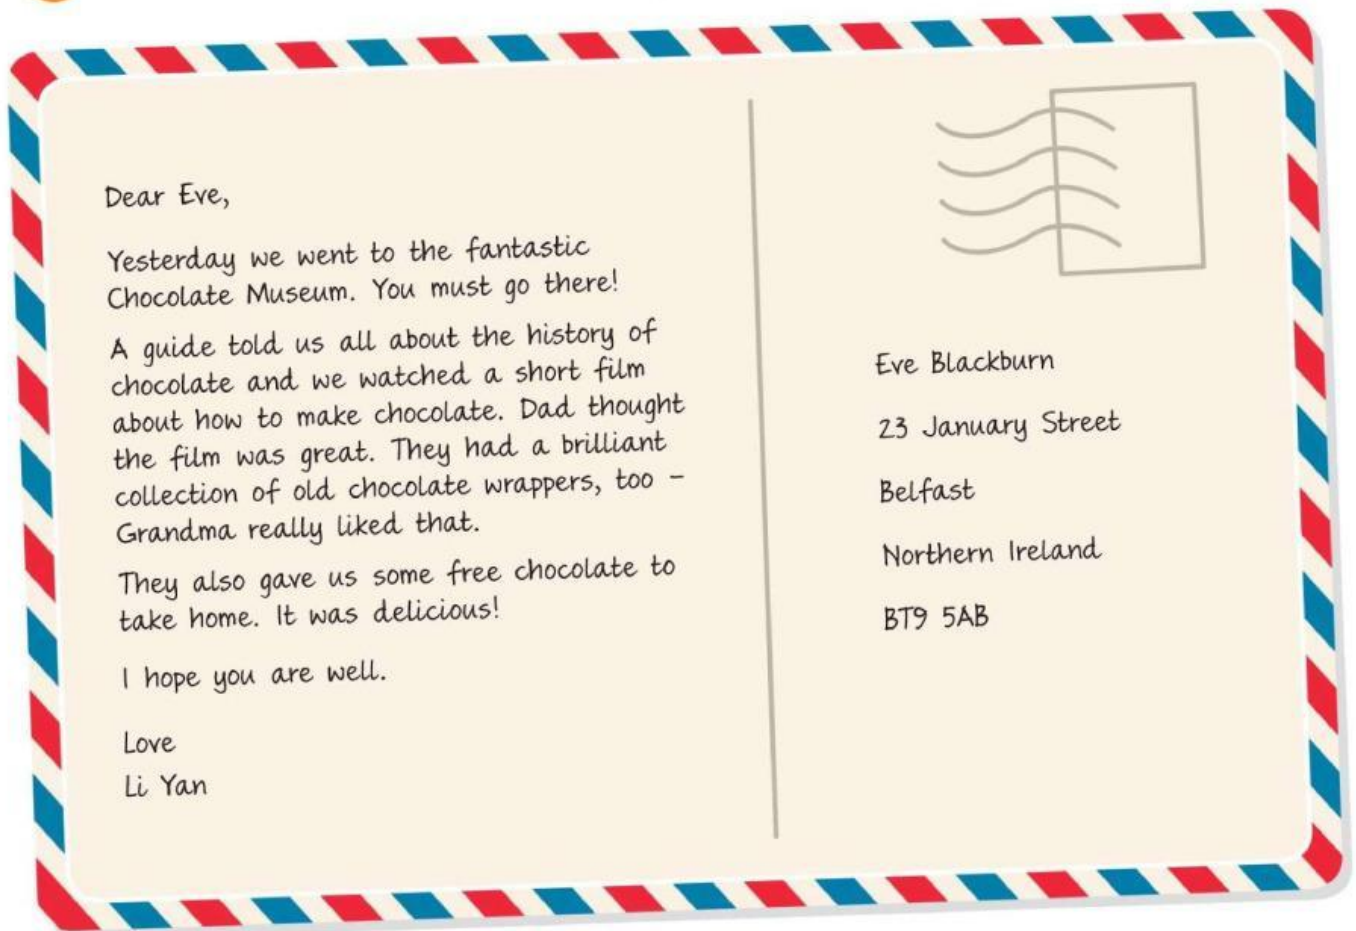 Dear Eve,
Yesterday we went to the fantastic
Chocolate Museum. You must go there!
A guide told us all about the history of
chocolate and we watched a short film
about how to make chocolate. Dad thought
the film was great. They had a brilliant
collection of old chocolate wrappers, too –
Grandma really liked that.
They also gave us some free chocolate to
take home. It was delicious!
I hope you are well.
Love
Li Yan
Eve Blackburn
23 January Street
Belfast
Northern Ireland
BT9 5AB